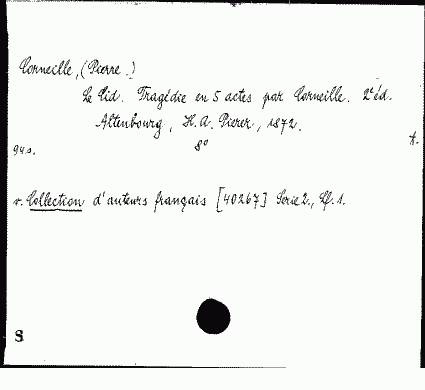 Corneille, (Pierre.)
Le Cid. Tragédie en 5 actes par Corneille. 2e éd.
Altenbourg, H. A. Pierer, 1872.
94 s. 8° A.
v. Collection d'auteurs français [40267] Serie 2., Lf. 1.
S